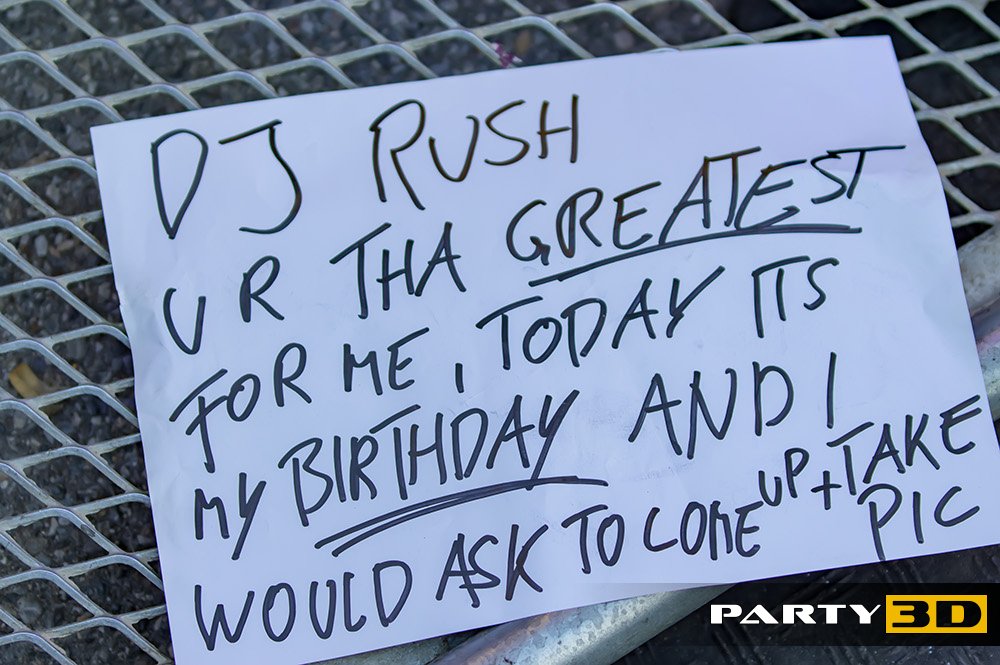 DJ RUSH
UR THA GREATEST
FOR ME, TODAY ITS
MY BIRTHDAY AND I
WOULD ASK TO COME UP + TAKE PIC
PARTY 3D